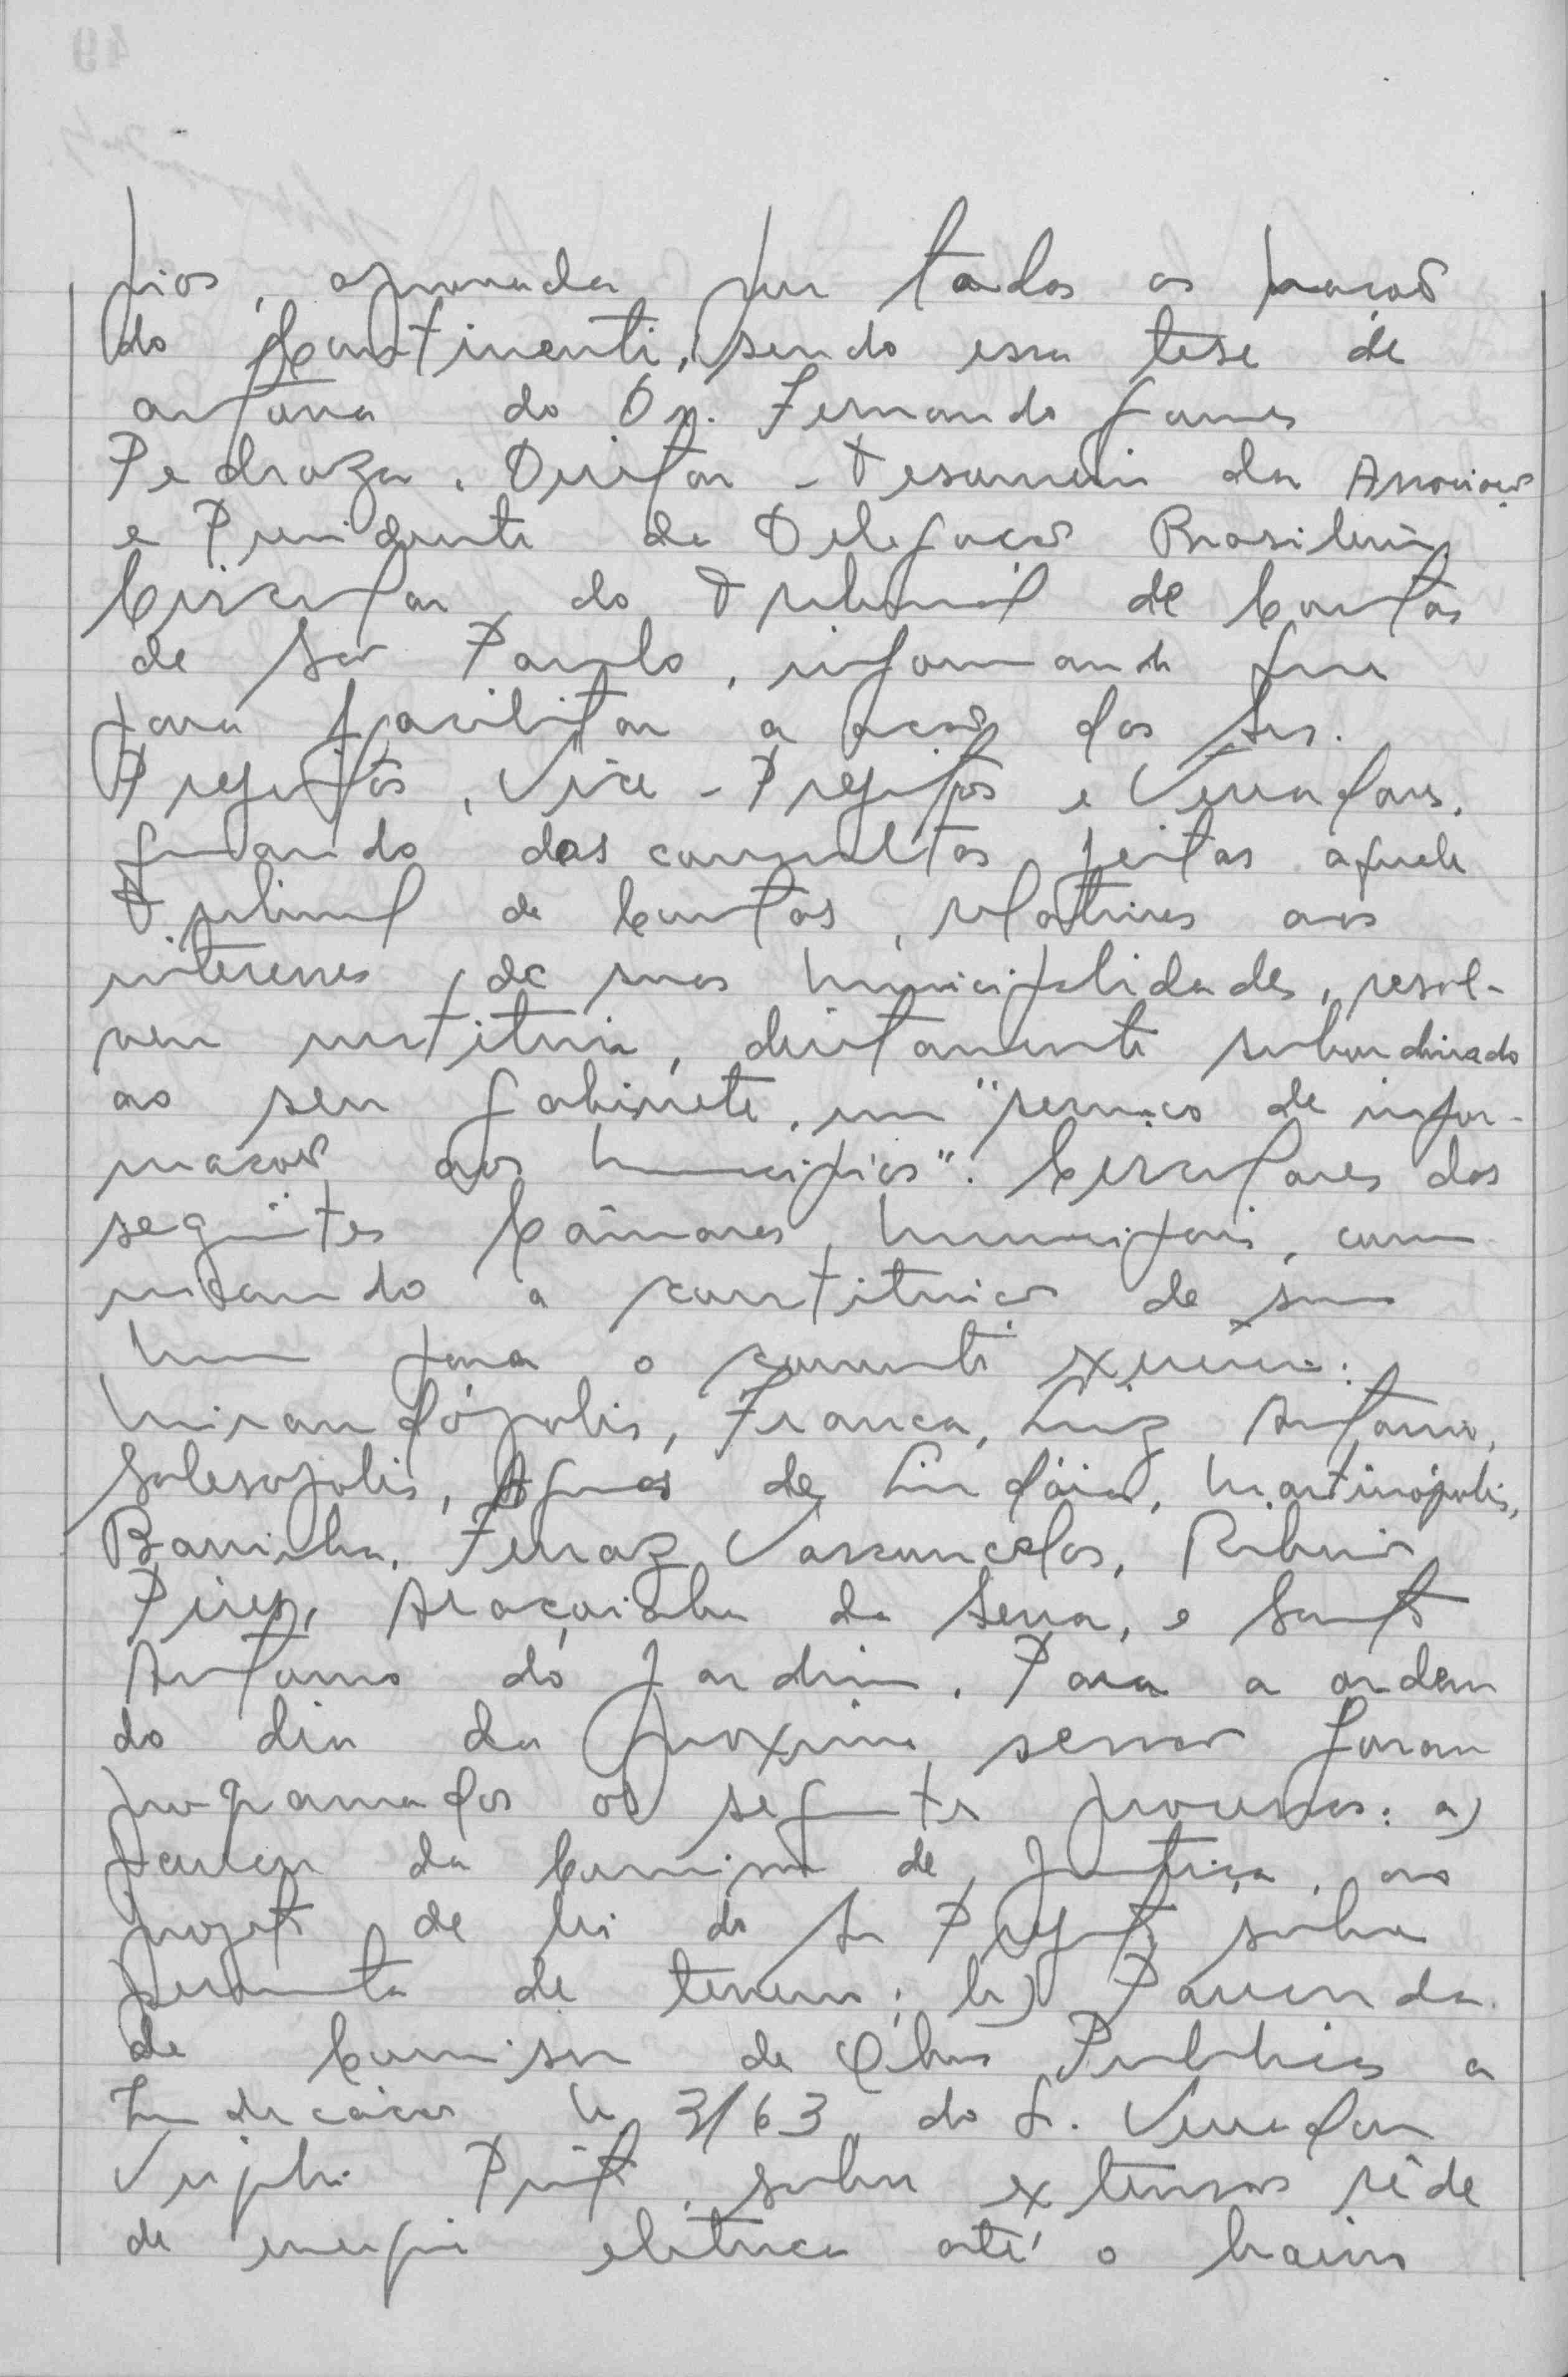 pios, aprovada por todas as nações
do Continente, sendo essa tese de
autoria do Dr. Fernando Gomes
Pedroza, Diretor-Tesoureiro da Associação
e Presidente da Delegação Brasileira.
Circular do Tribunal de Contas
de São Paulo, informando que
para facilitar a ação dos Srs.
Prefeitos, Vice-Prefeitos e Vereadores,
quando das consultas feitas aquele
Tribunal de Contas, relativas aos
interesses de suas municipalidades, resol-
veu instituir, diretamente subordinado
ao seu gabinete, um "serviço de infor-
mações aos municípios". Circulares das
seguintes Câmaras Municipais, comu
nicando a constituição de sua
Mesa para o corrente exercicio:
Mirandópolis, Franca, Luiz Antonio,
Salesopolis, Aguas de Lindóia, Martinópolis,
Barrinha, Ferraz Vasconcelos, Ribeirão
Pires, Araçoiaba da Serra, e Santo
Antonio do Jardim. Para a ordem
do dia da proxima sessão foram
programados os seguintes processos: a)
parecer da Comissão de Justiça, ao
projeto de lei do Sr Prefeito sobre
permuta de terreno; b) Parecer da
de Comissão de Obras Publicas a
Indicação n 3/63 do Sr. Vereador
sobre extensão rêde
de energia eletrica até o bairro